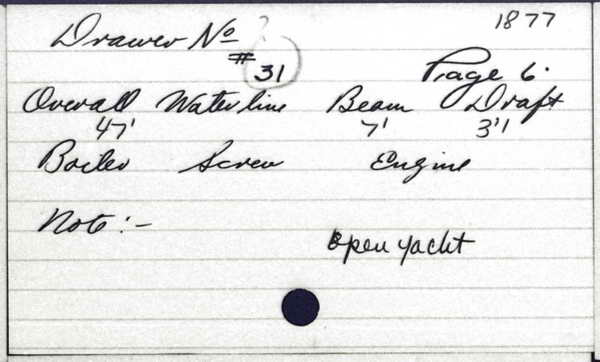 1877
Drawer No ?
# 31
Page 6.
Overall Waterline Beam Draft
47' 7' 3'1
Boiler Screw Engine
Note :-
Open yacht